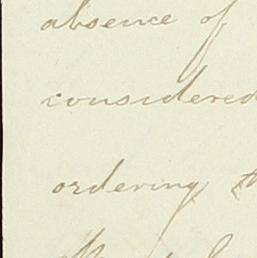 absence of
considered
ordering